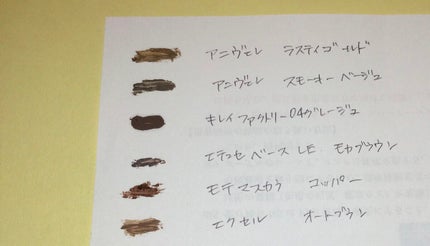 アニヴェレ ラスティゴールド
アニヴェレ スモーキーベージュ
キレイファクトリー04グレージュ
エテュセ ベース LE モカブラウン
モテマスカラ コッパー
エクセル オートブラウン